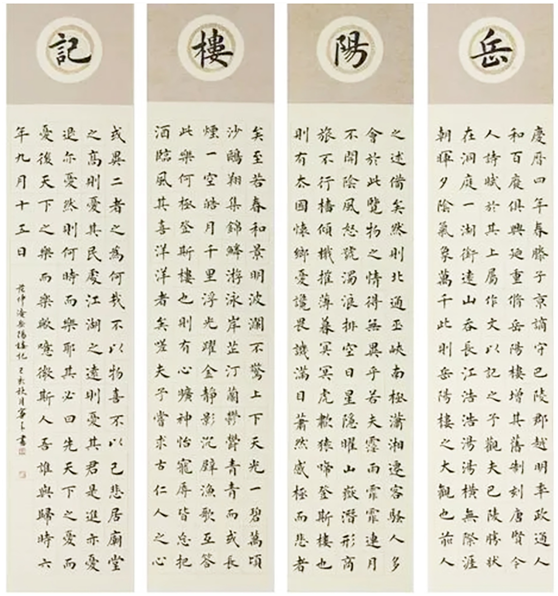 岳
陽
樓
記
慶曆四年春滕子京謫守巴陵郡越明年政通人
和百廢俱興乃重修岳陽樓增其舊制刻唐賢今
人詩賦於其上屬作文以記之予觀夫巴陵勝狀
在洞庭一湖銜遠山吞長江浩浩湯湯橫無際涯
朝暉夕陰氣象萬千此則岳陽樓之大觀也前人
之述備矣然則北通巫峽南極瀟湘遷客騷人多
會於此覽物之情得無異乎若夫霪雨霏霏連月
不開陰風怒號濁浪排空日星隱曜山嶽潛形商
旅不行檣傾楫摧薄暮冥冥虎嘯猿啼登斯樓也
則有去國懷鄉憂讒畏譏滿目蕭然感極而悲者
矣至若春和景明波瀾不驚上下天光一碧萬頃
沙鷗翔集錦鱗游泳岸芷汀蘭鬱鬱青青而或長
煙一空皓月千里浮光躍金靜影沉璧漁歌互答
此樂何極登斯樓也則有心曠神怡寵辱皆忘把
酒臨風其喜洋洋者矣嗟夫予嘗求古仁人之心
或異二者之為何哉不以物喜不以己悲居廟堂
之高則憂其民處江湖之遠則憂其君是進亦憂
退亦憂然則何時而樂耶其必曰先天下之憂而
憂後天下之樂而樂歟噫微斯人吾誰與歸時六
年九月十五日
范仲淹岳陽樓記 己亥秋月 書